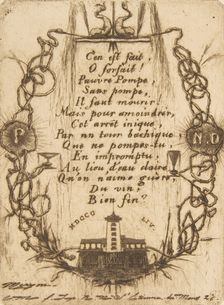 C'en est fait,
O forfait!
Pauvre Pompe,
Sans pompe,
Il faut mourir!
Mais pour amoindrir,
Cet arrêt inique,
Par un tour bachique,
Que ne pompes-tu,
En impromptu,
Au lieu d'eau claire
Qu'on n'aime guère,
Du vin,
Bien fin?
P
N.D
MDCCC